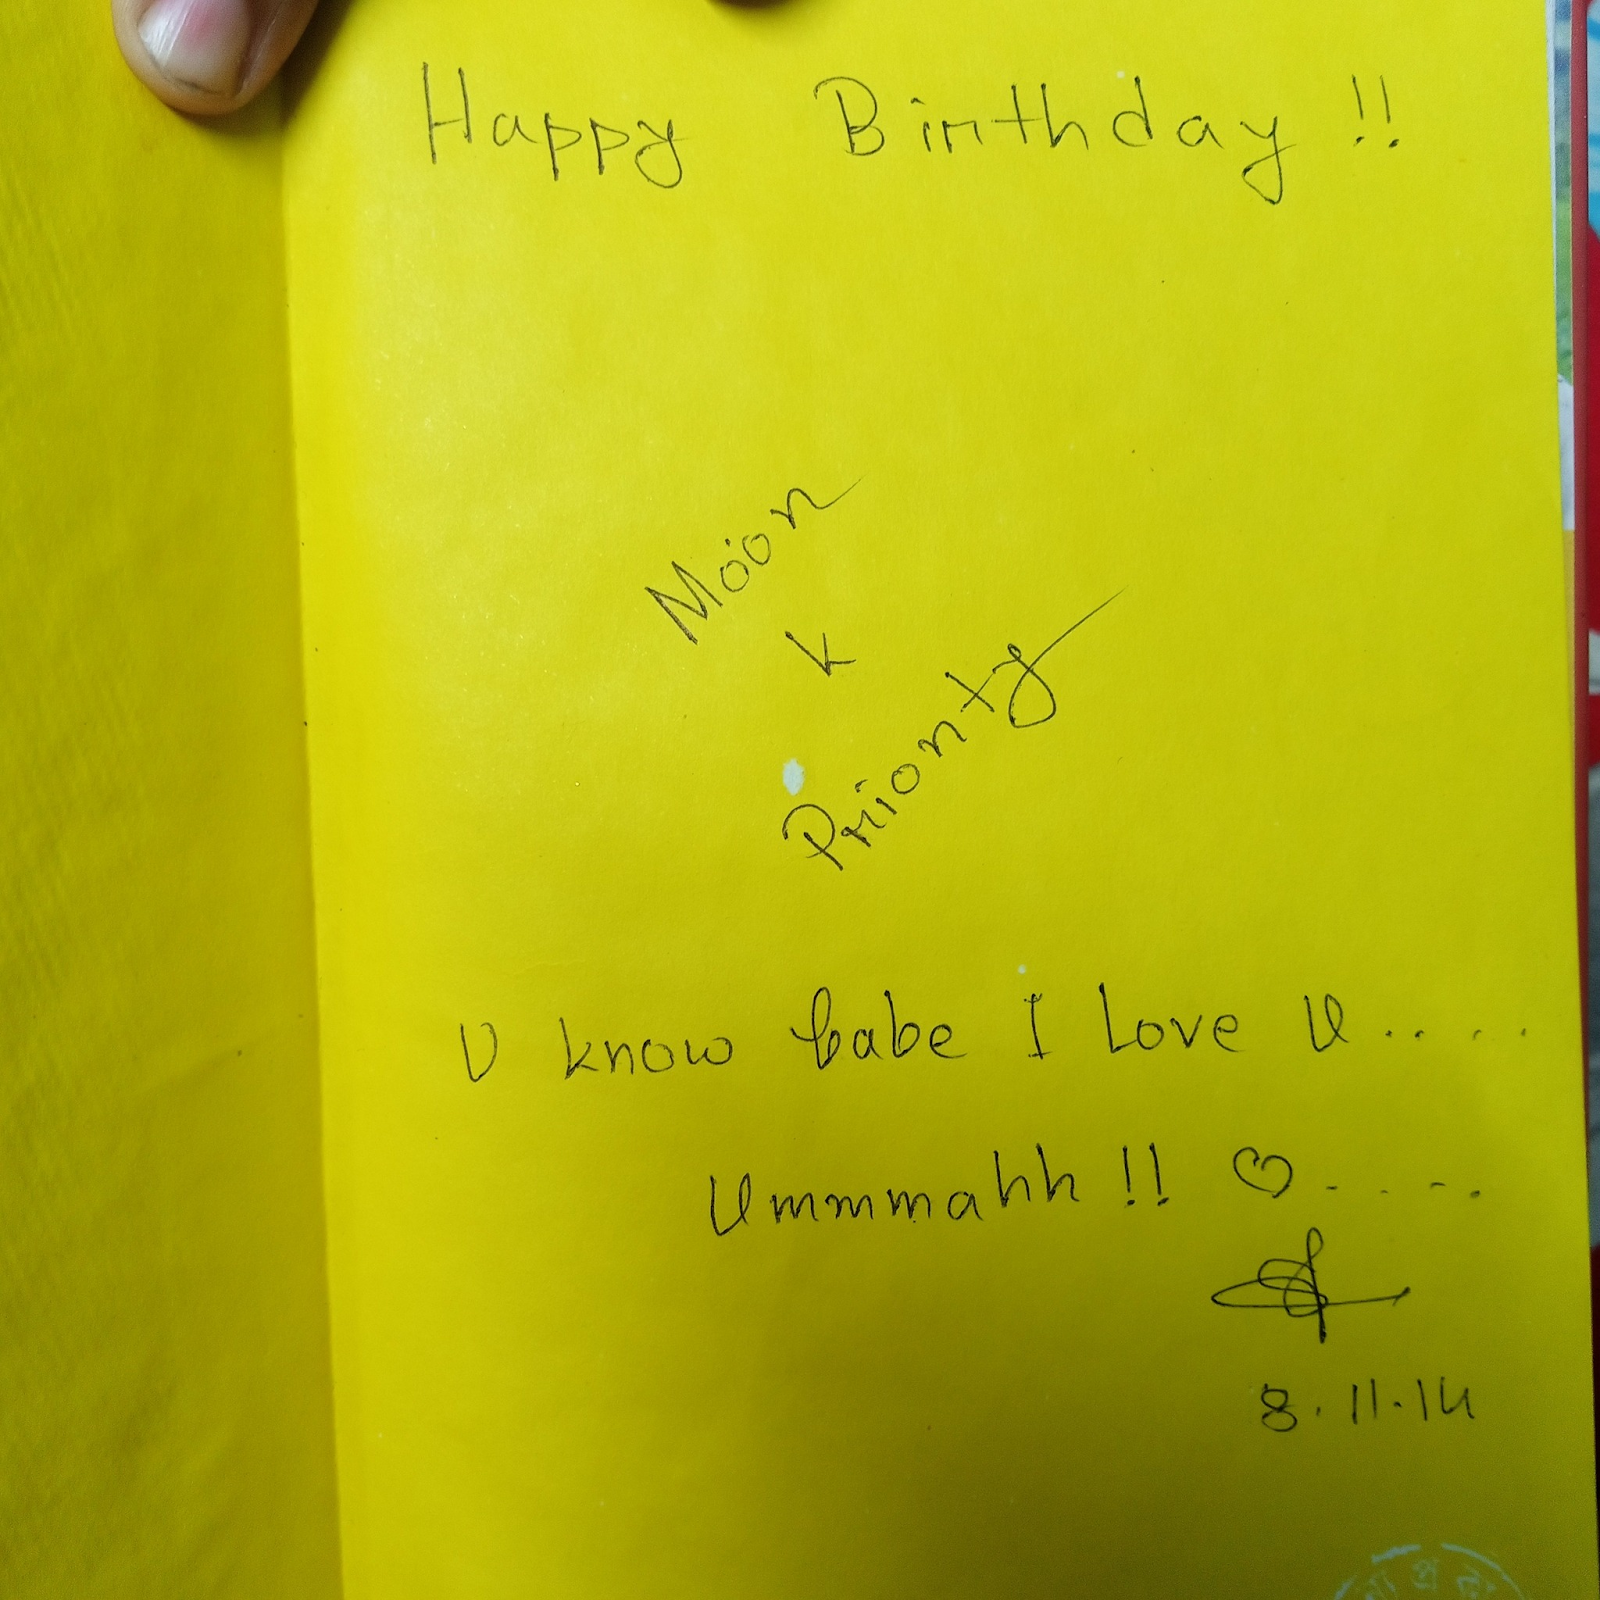 Happy Birthday !!
Moon
K
Prionty
U know babe I Love U.....
Ummmahh !! ♡.....
8.11.14